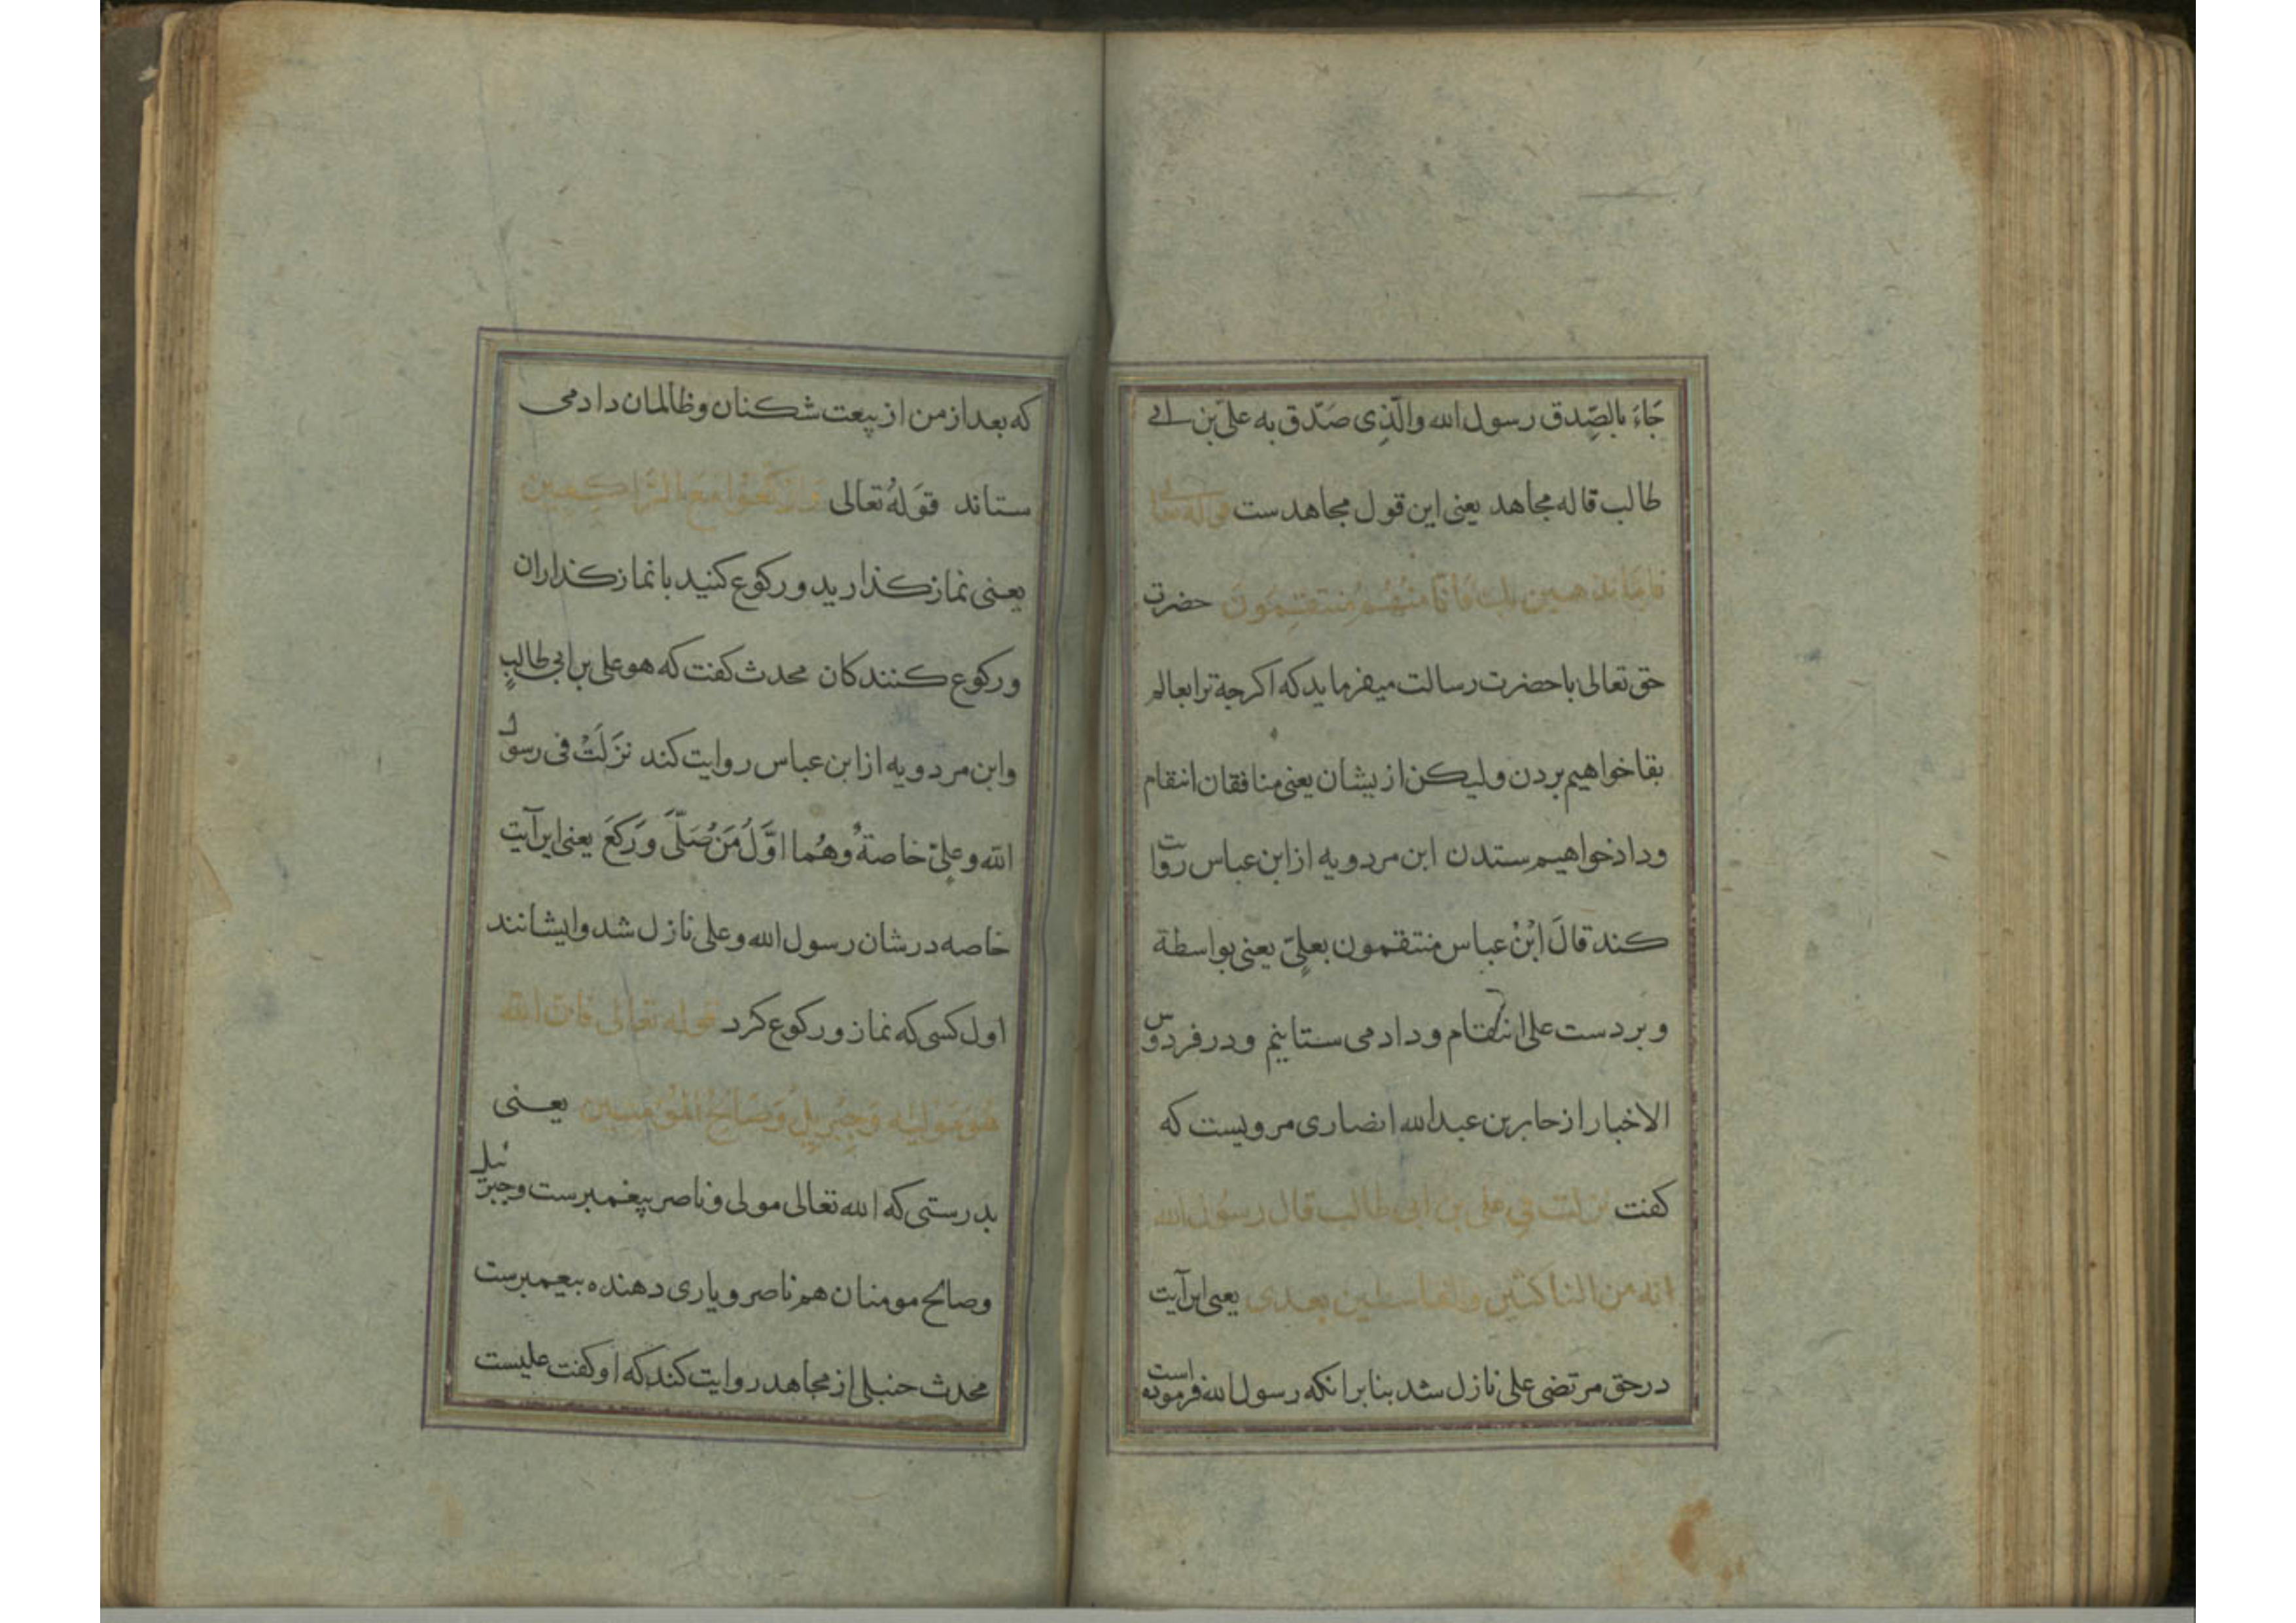 جَاءَ بالصِّدق رسول الله والَّذِی صَدَّق به علیّ بن ابی
طالب قاله مجاهد یعنی این قول مجاهدست قوله تعالی
فَاِمَّا نَذهبن بك فَاِنَّا مِنْهُمْ مُنتَقِمُونَ حضرت
حق تعالی با حضرت رسالت میفرماید که اکرچه ترا بعالم
بقا خواهیم بردن ولیکن ازیشان یعنی منافقان انتقام
وداد خواهیم ستدن ابن مردویه از ابن عباس روایت
کند قالَ ابْنُ عباس منتقمون بعلِیّ یعنی بواسطة
و بر دست علی انتقام و داد می ستانیم و در فردوس
الاخبار از جابر بن عبدالله انصاری مرویست که
کفت نزلت فی علی بن ابی طالب قال رسول الله
انه من الناکثین والقاسطین بعدی یعنی این آیت
در حق مرتضی علی نازل شد بنابر انکه رسول الله فرموده است
که بعد از من از بیعت شکنان و ظالمان داد می
ستاند قوَلهُ تعالی وَارْکَعُوا مَعَ الرَّاکِعِین
یعنی نماز کذارید و رکوع کنید با نماز کذاران
و رکوع کنندکان محدث کفت که هو علی بن ابی طالبٍ
وابن مردویه از ابن عباس روایت کند نَزَلَتْ فی رسول
الله و علیٍّ خاصةً وهُما اوَّلُ مَنْ صَلَّیَ وَرَکَعَ یعنی این آیت
خاصه در شان رسول الله و علی نازل شد و ایشانند
اول کسی که نماز و رکوع کرد قوله تعالی فان الله
هُوَ مَوْلیٰه وَجِبْرِیلُ وَصَالِحُ المُؤْمِنین یعنی
بدرستی که الله تعالی مولی و ناصر پیغمبرست و جبرئیل
و صالح مومنان هم ناصر و یاری دهنده بیغمبرست
محدث حنبلی از مجاهد روایت کند که او کفت علیست